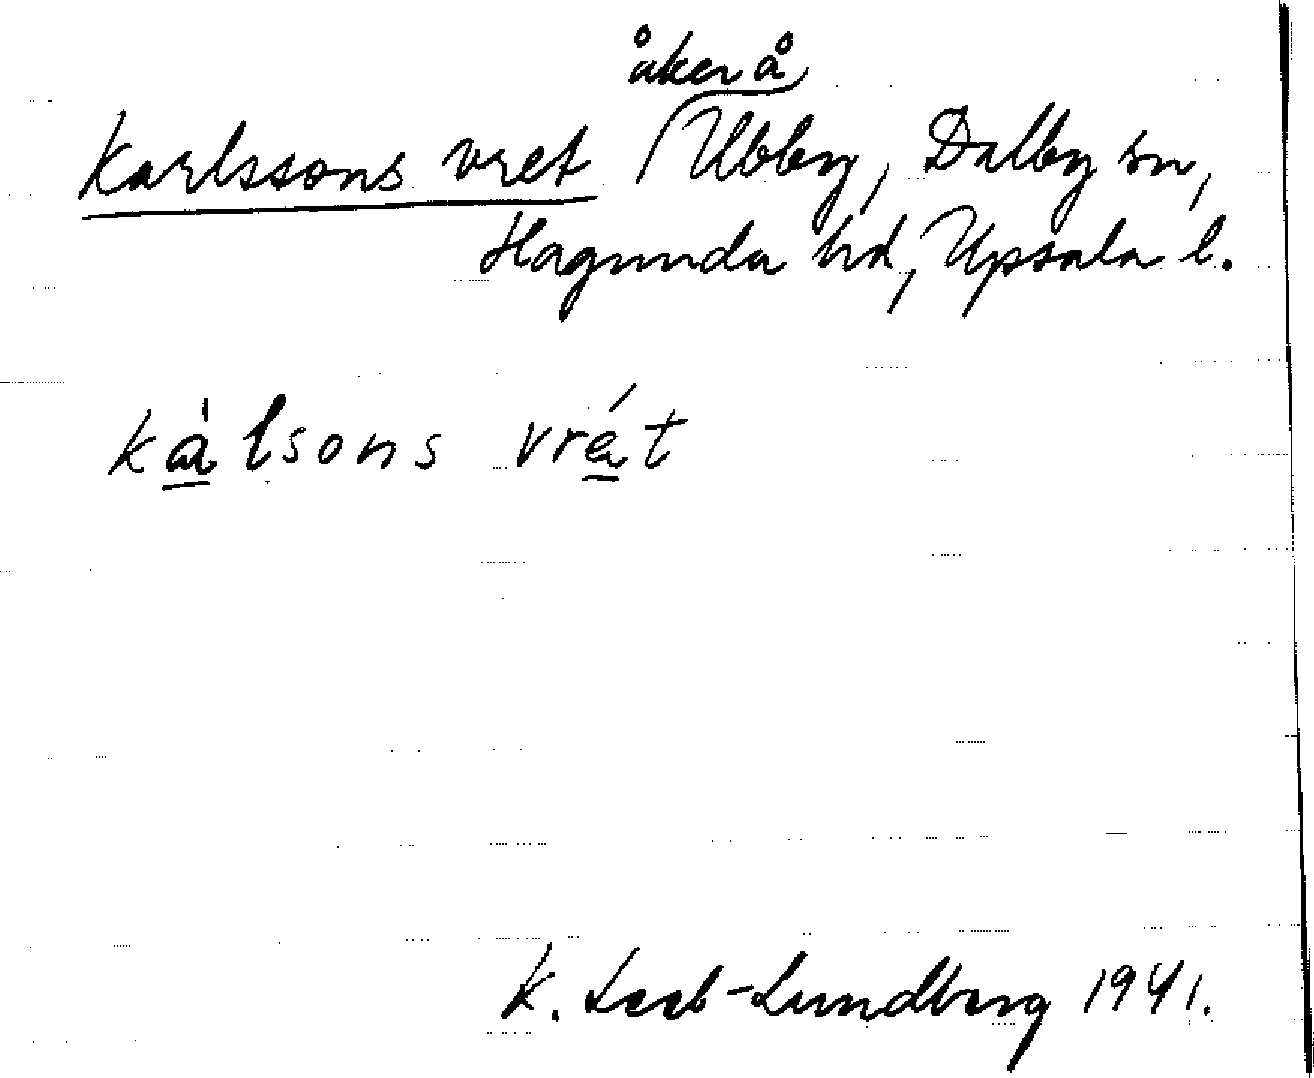 åker å
Karlssons vret Ubby, Dalby sn,
Hagunda hd, Upsala l.
kàlsons vrét
K. Leeb-Lundberg 1941.